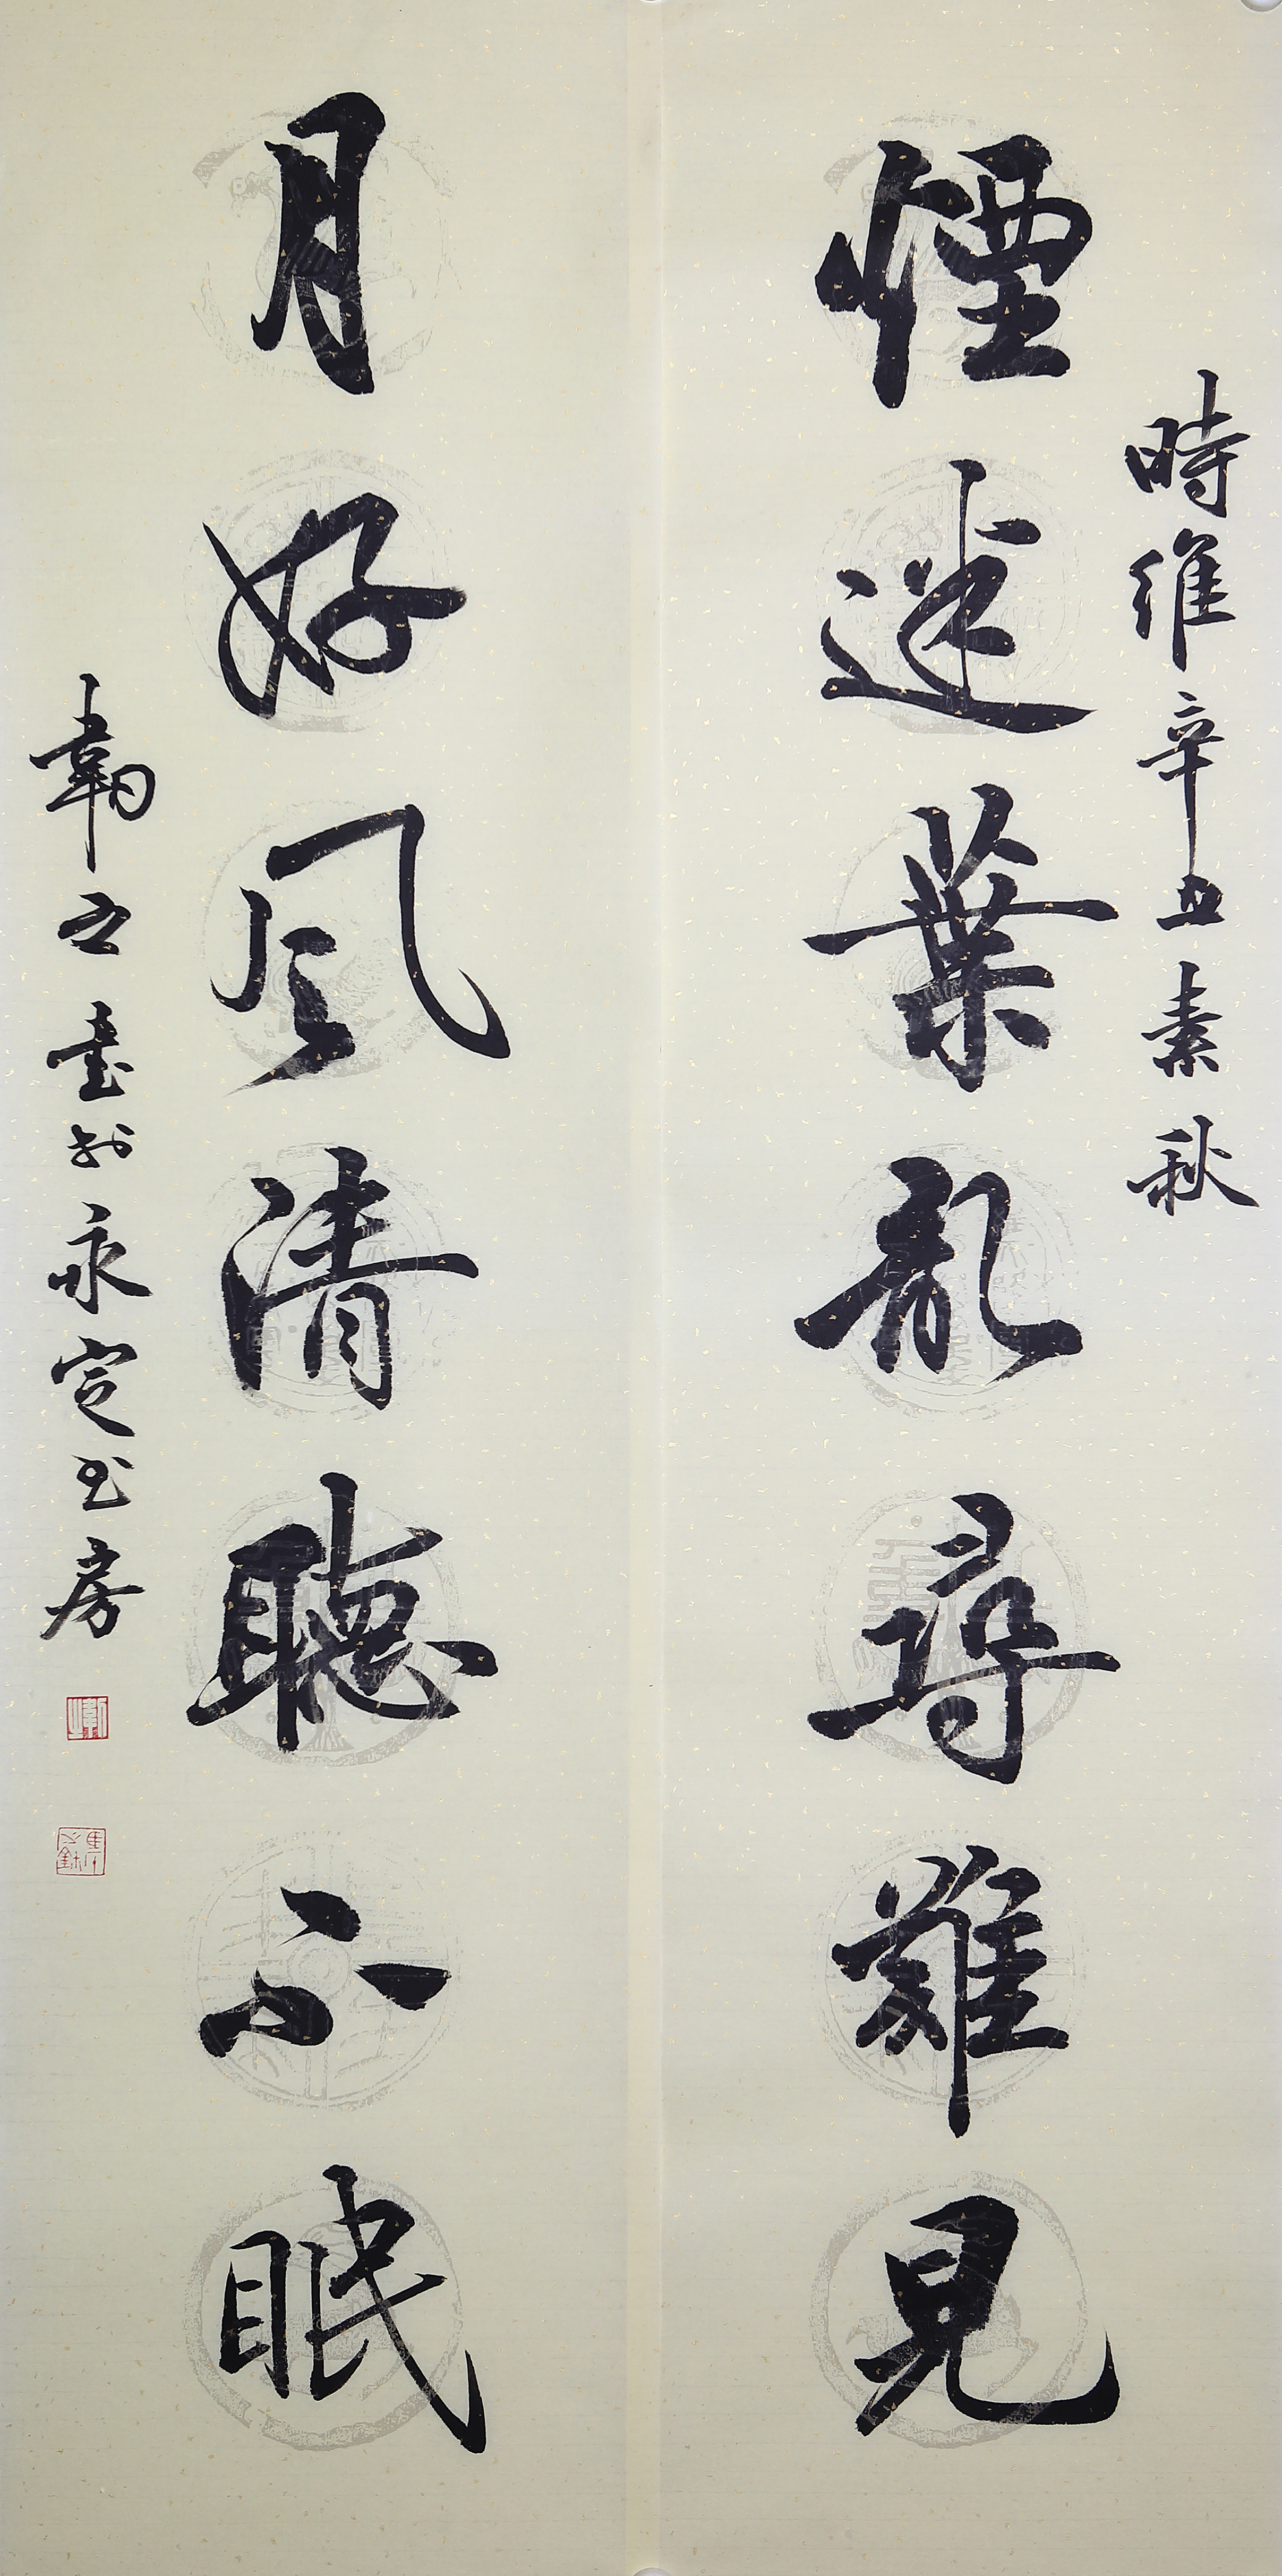 時維辛丑素秋
煙迷葉亂尋難見
月好風清聽不眠
韌之書於永定书房